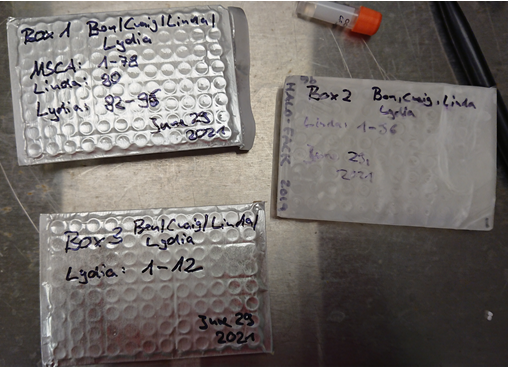 Box 1 Ben/Craig/Linda/
Lydia
MSCA: 1-78
Linda: 80
Lydia: 82-96
June 29
2021
Box 2 Ben, Craig, Linda
Lydia
Linda: 1-96
June 29,
2021
2019
Box 3 Ben/Craig/Linda/
Lydia
Lydia: 1-12
June 29
2021